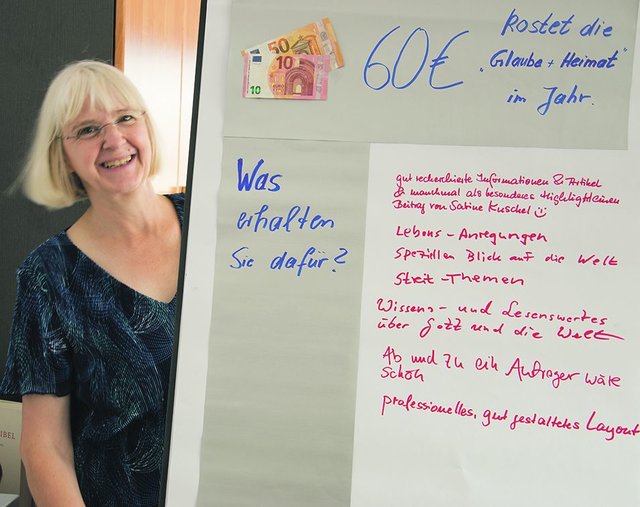 50
10
10
60€
kostet die
"Glaube + Heimat"
im Jahr.
Was
erhalten
Sie dafür?
gut recherchierte Informationen & Artikel
& manchmal als besonderes Highlight einen
Beitrag von Sabine Kuschel
Lebens-Anregungen
speziellen Blick auf die Welt
Streit-Themen
Wissens- und Lesenswertes
über Gott und die Welt
Ab und zu ein Aufreger wäre
schön
professionelles, gut gestaltetes Layout
IBEL